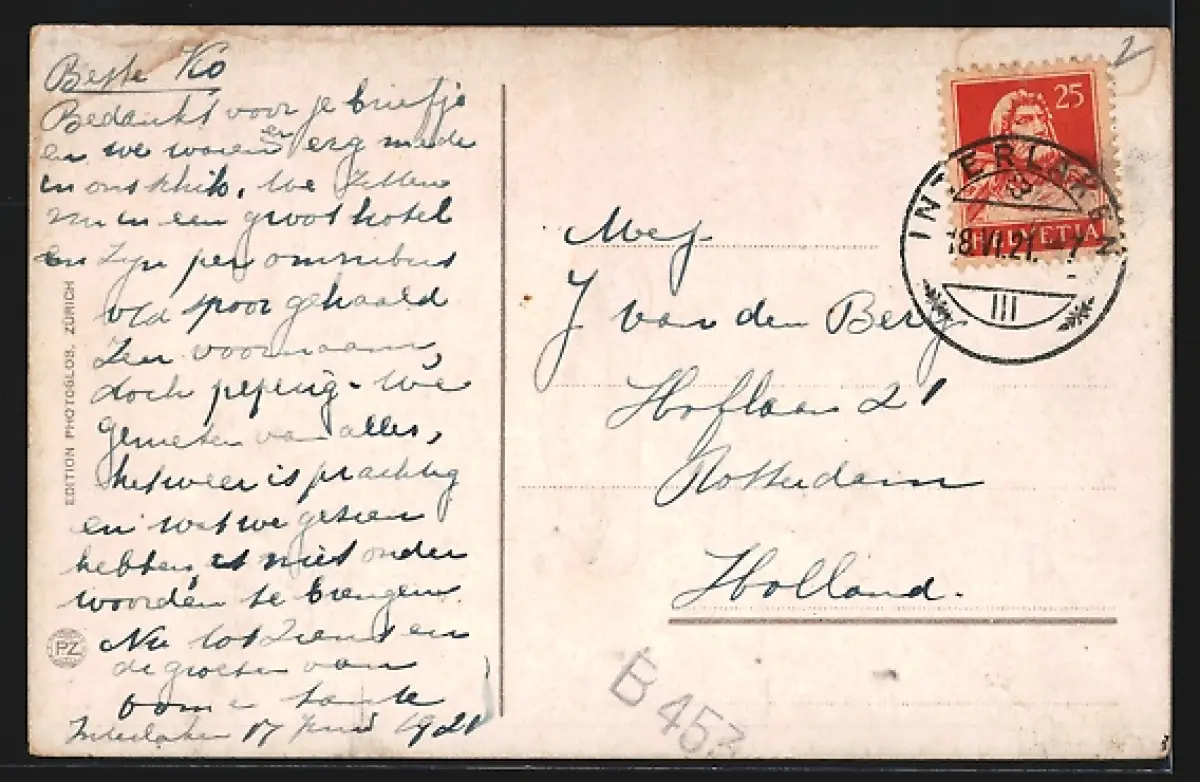 Beste Ko
Bedankt voor je briefje
en we waren er erg mede
in ons schik. We zitten
nu in een groot hotel
en zijn per omnibus
v/d spoor gehaald
Zeer voornaam,
doch peperig. We
genieten van alles,
het weer is prachtig
en wat we gezien
hebben is niet onder
woorden te brengen.
Nu tot ziens en
de groeten van
oom en tante
Interlaken 17 Juni 1921
EDITION PHOTOGLOB. ZÜRICH
P.Z.
2
25
HELVETIA
INTERLAKEN
18.VI.21.-7
III
Mej.
J van den Berg
Hoflaan 21
Rotterdam
Holland.
B 453